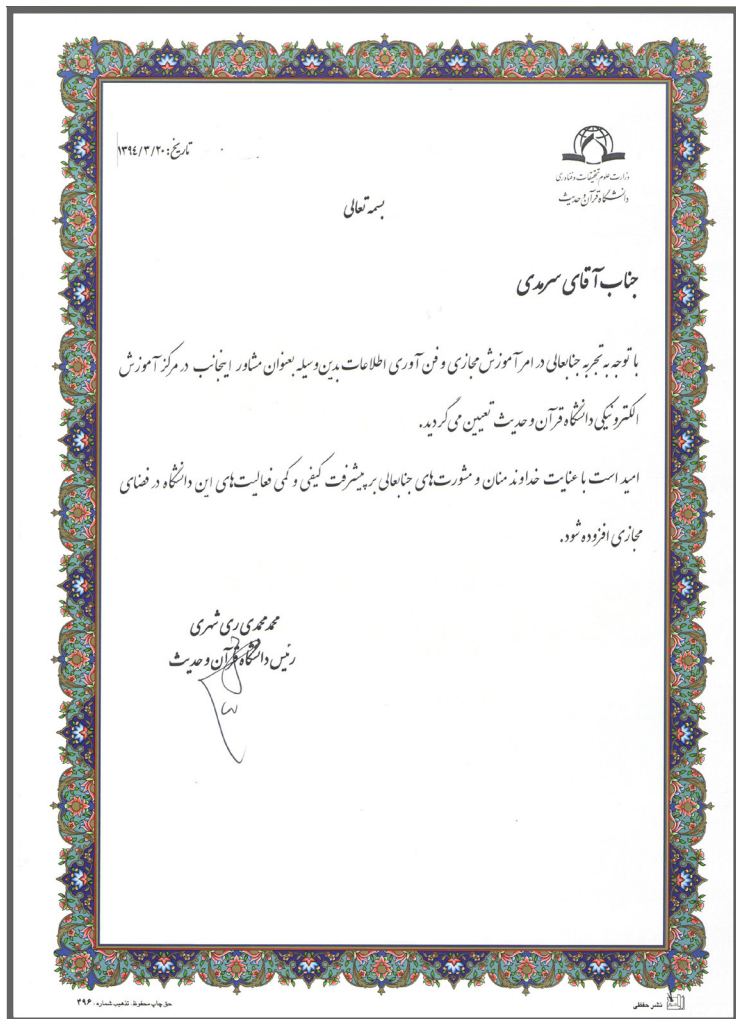 تاریخ: ۱۳۹٤/۳/۲۰
وزارت علوم تحقیقات و فناوری
دانشگاه قرآن و حدیث
بسمه تعالی
جناب آقای سرمدی
با توجه به تجربه جنابعالی در امر آموزش مجازی و فن آوری اطلاعات بدین وسیله بعنوان مشاور اینجانب در مرکز آموزش
الکترونیکی دانشگاه قرآن و حدیث تعیین می گردید.
امید است با عنایت خداوند منان و مشورت های جنابعالی بر پیشرفت کیفی و کمی فعالیت های این دانشگاه در فضای
مجازی افزوده شود.
محمد محمدی ری شهری
رئیس دانشگاه قرآن و حدیث
نشر حفظی
حق چاپ محفوظ. تذهیب شماره: ۴۹۶